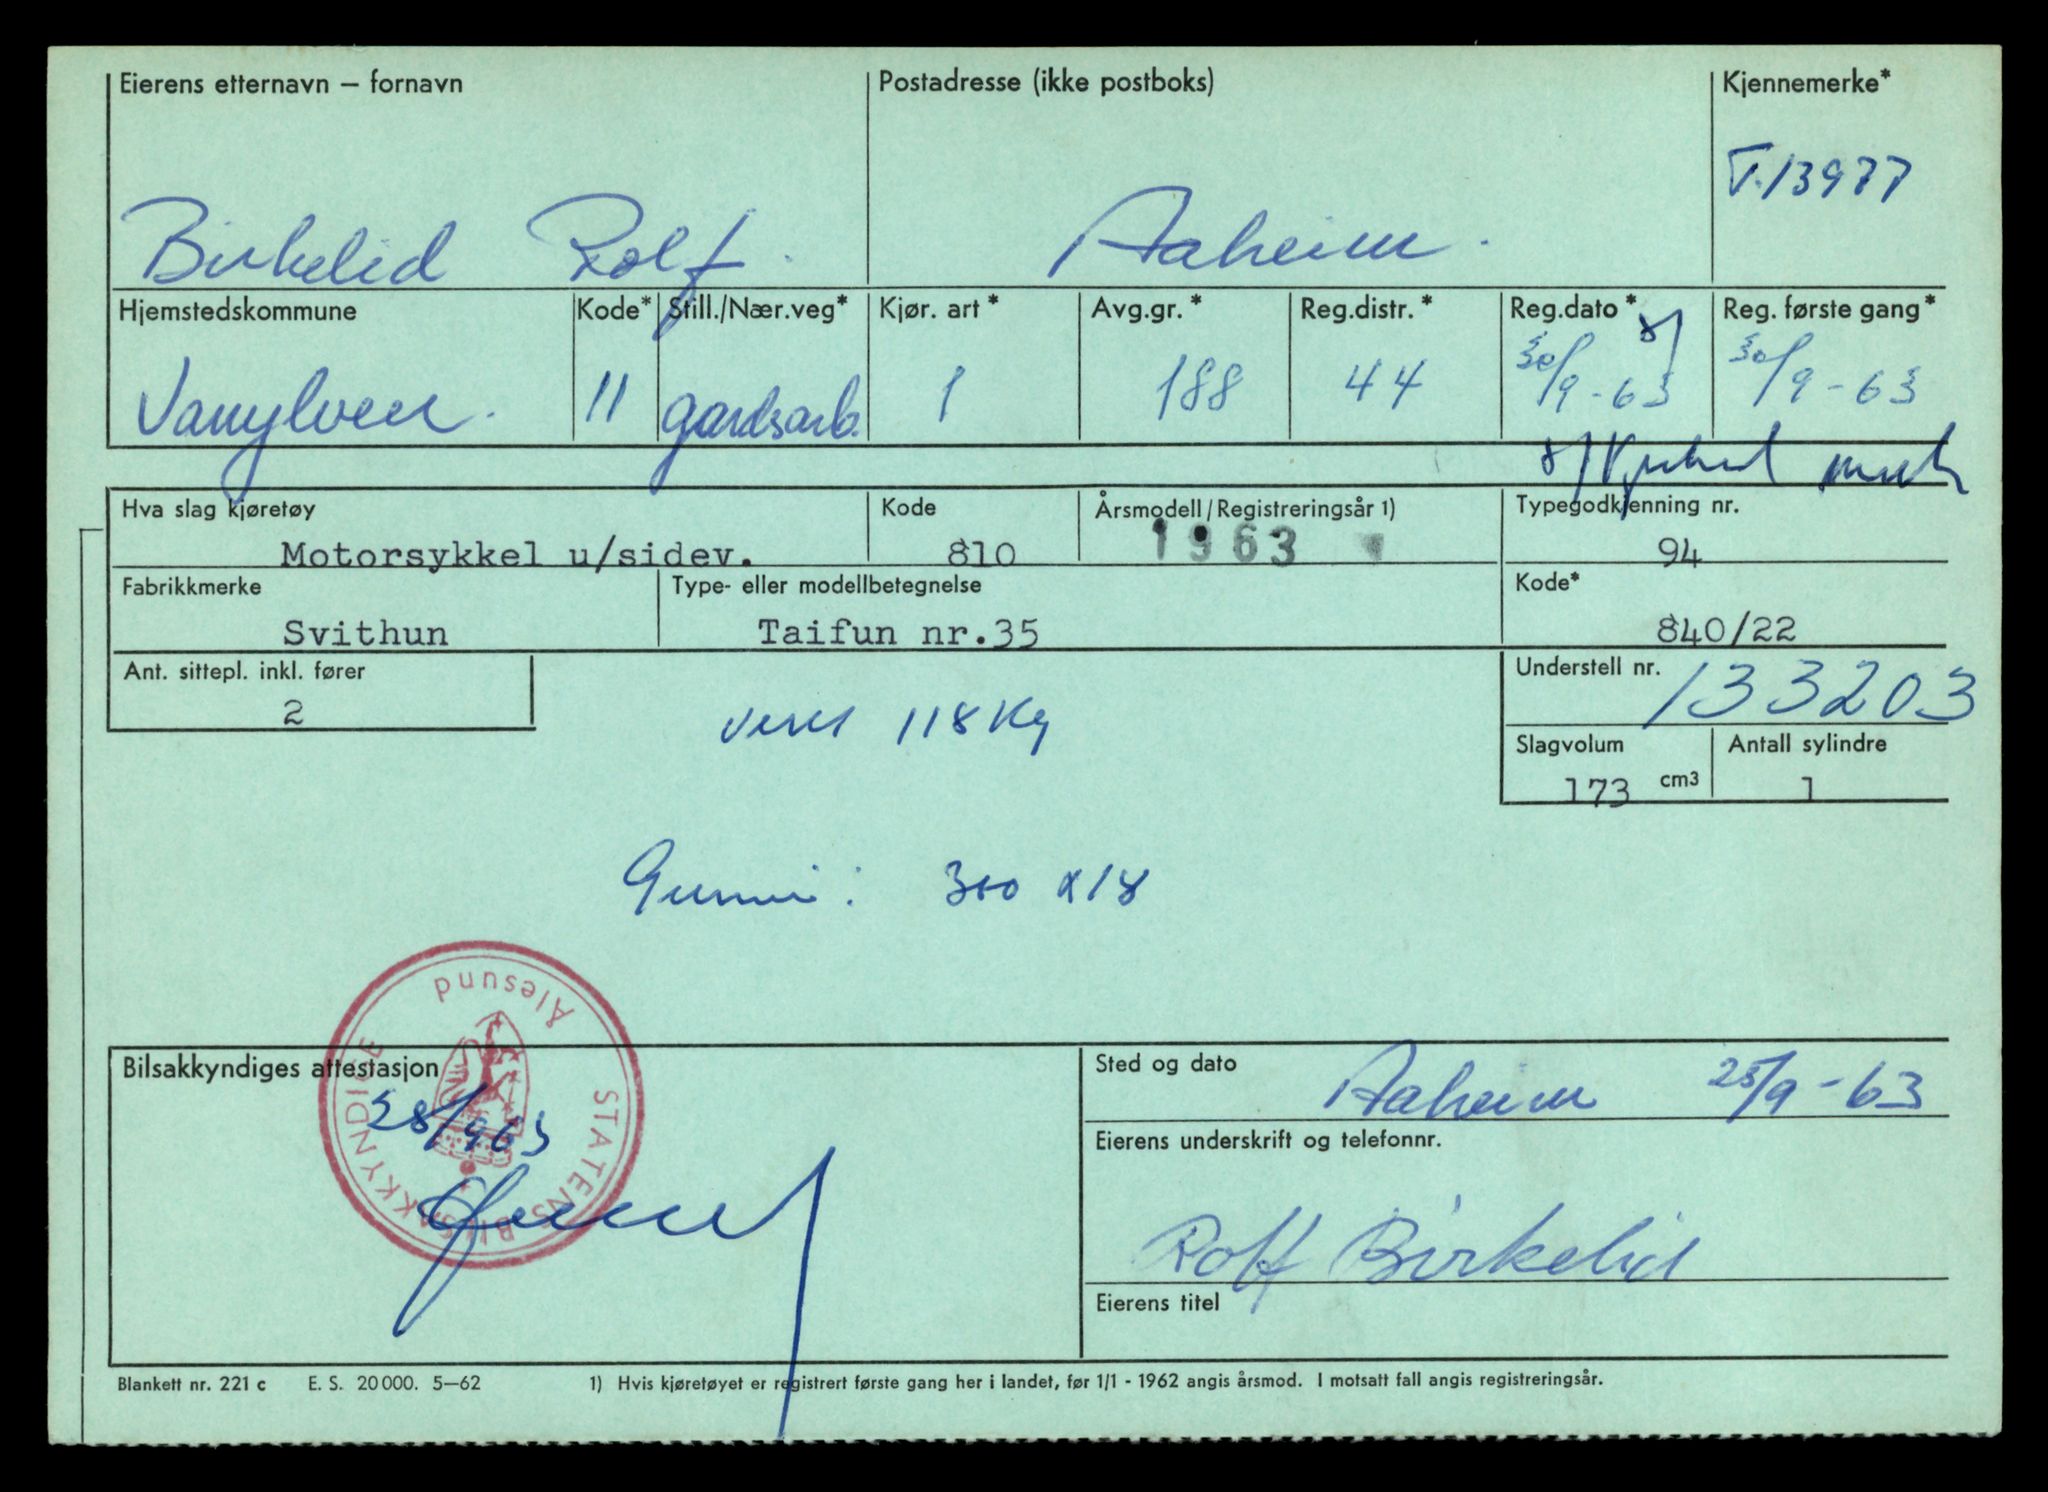 Eierens etternavn – fornavn Postadresse (ikke postboks) Kjennemerke*
T.13977
Birkelid Rolf. Aaheim.
Hjemstedskommune Kode* Still./Nær.veg* Kjør. art* Avg.gr.* Reg.distr.* Reg.dato* Reg. første gang*
Vanylven. 11 gardsarb. 1 188 44 30/9-63 30/9-63
Hva slag kjøretøy Kode Årsmodell/Registreringsår 1) Typegodkjenning nr.
Motorsykkel u/sidev. 810 1963 94
Fabrikkmerke Type- eller modellbetegnelse Kode*
Svithun Taifun nr.35 840/22
Ant. sittepl. inkl. fører Understell nr.
2 133203
vekt 118 Kg
Slagvolum Antall sylindre
173 cm3 1
Gummi: 300 x 18
STATENS BILSAKKYNDIGE Ålesund
Bilsakkyndiges attestasjon Sted og dato
28/9 63 Aaheim 25/9-63
Eierens underskrift og telefonnr.
Rolf Birkelid
Eierens titel
Blankett nr. 221 c E. S. 20000. 5–62 1) Hvis kjøretøyet er registrert første gang her i landet, før 1/1 - 1962 angis årsmod. I motsatt fall angis registreringsår.